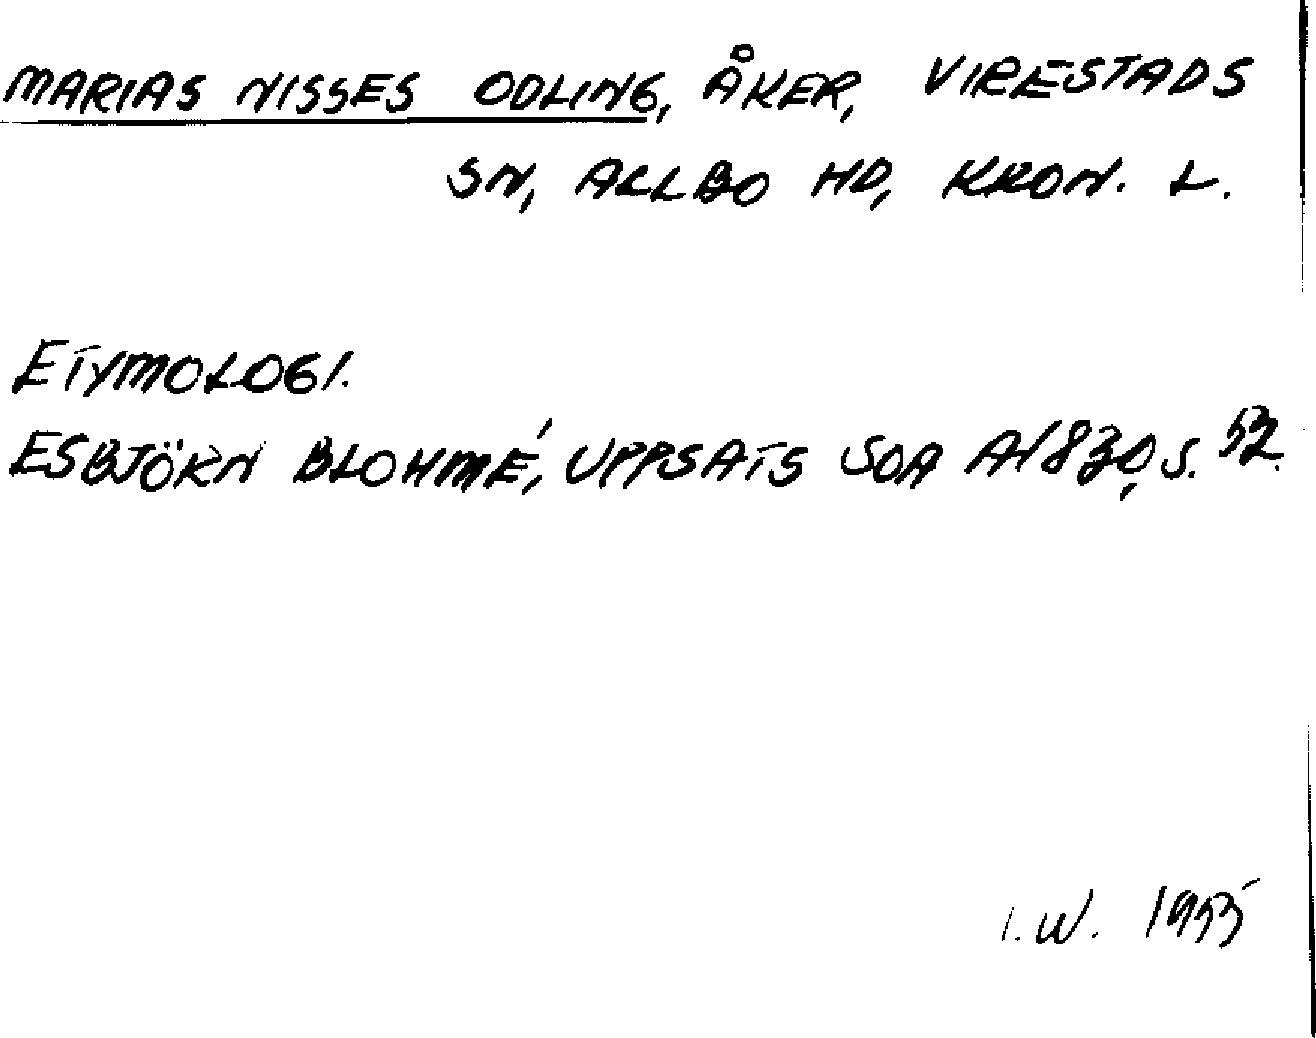 MARIAS NISSES ODLING, ÅKER, VIRESTADS
SN, ALLBO HD, KRON. L.
ETYMOLOGI.
ESBJÖRN BLOHMÉ, UPPSATS SOA A1830, S. 52.
I.W. 1955